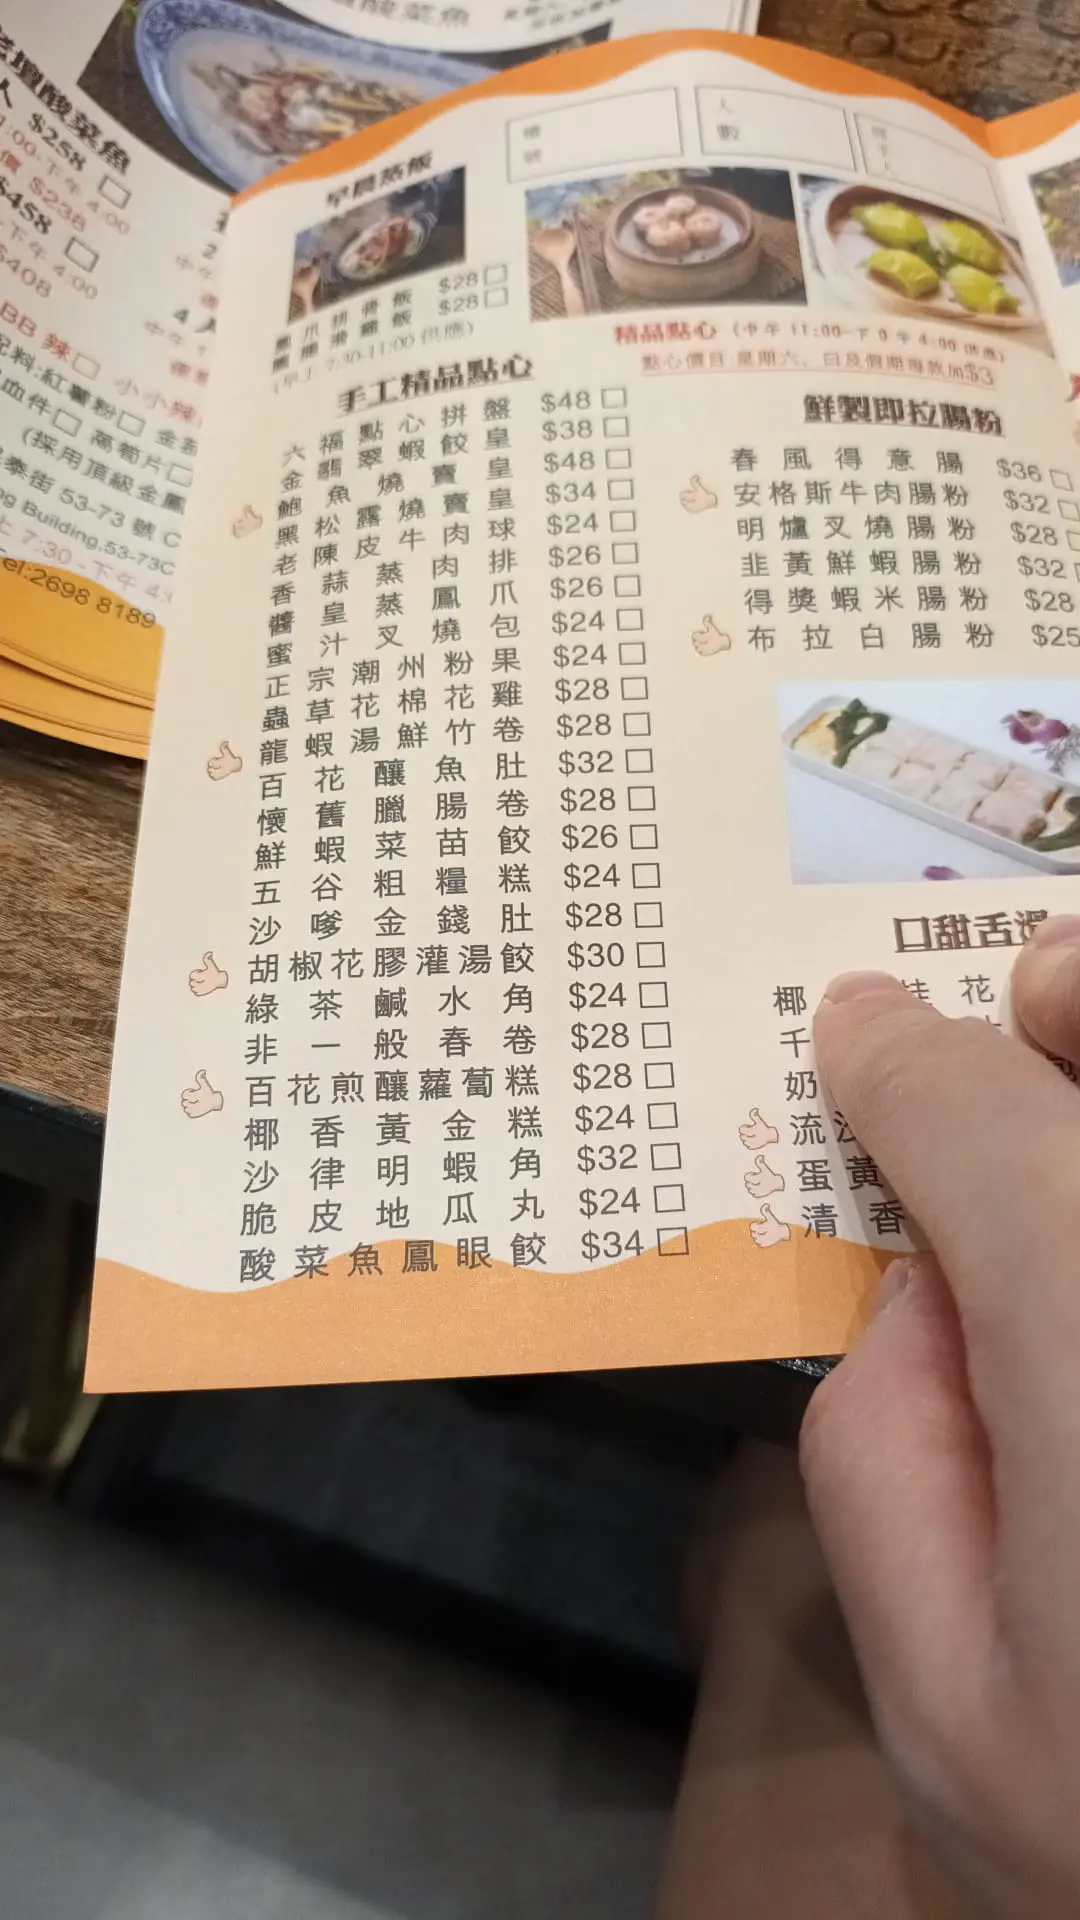 老壇酸菜魚
人 $258
$238
$458
下午 4:00
$408
BB 辣
小小辣
配料:紅薯粉
血件
萵筍片
(採用頂級金鳳
泰街 53-73 號
ng Building,53-73C
上 7:30 -下午 4:
Tel:2698 8189
酸菜魚
人數
早晨蒸飯
鳳爪排骨飯 $28
$28
(早上 7:30-11:00 供應)
精品點心 (中午 11:00-下午 4:00 供應)
點心價目 星期六、日及假期每款加$3
手工精品點心
六福點心拼盤 $48
金翡翠蝦餃皇 $38
鮑魚燒賣皇 $48
黑松露燒賣皇 $34
老陳皮牛肉球 $24
香蒜蒸肉排 $26
醬皇蒸鳳爪 $26
蜜汁叉燒包 $24
正宗潮州粉果 $24
蟲草花棉花雞 $28
龍蝦湯鮮竹卷 $28
百花釀魚肚 $32
懷舊臘腸卷 $28
鮮蝦菜苗餃 $26
五谷粗糧糕 $24
沙嗲金錢肚 $28
胡椒花膠灌湯餃 $30
綠茶鹹水角 $24
非一般春卷 $28
百花煎釀蘿蔔糕 $28
椰香黃金糕 $24
沙律明蝦角 $32
脆皮地瓜丸 $24
酸菜魚鳳眼餃 $34
鮮製即拉腸粉
春風得意腸 $36
安格斯牛肉腸粉 $32
明爐叉燒腸粉 $28
韭黃鮮蝦腸粉 $32
得獎蝦米腸粉 $28
布拉白腸粉 $25
口甜舌滑
椰 桂花
千
奶
流沙
蛋黃
清香